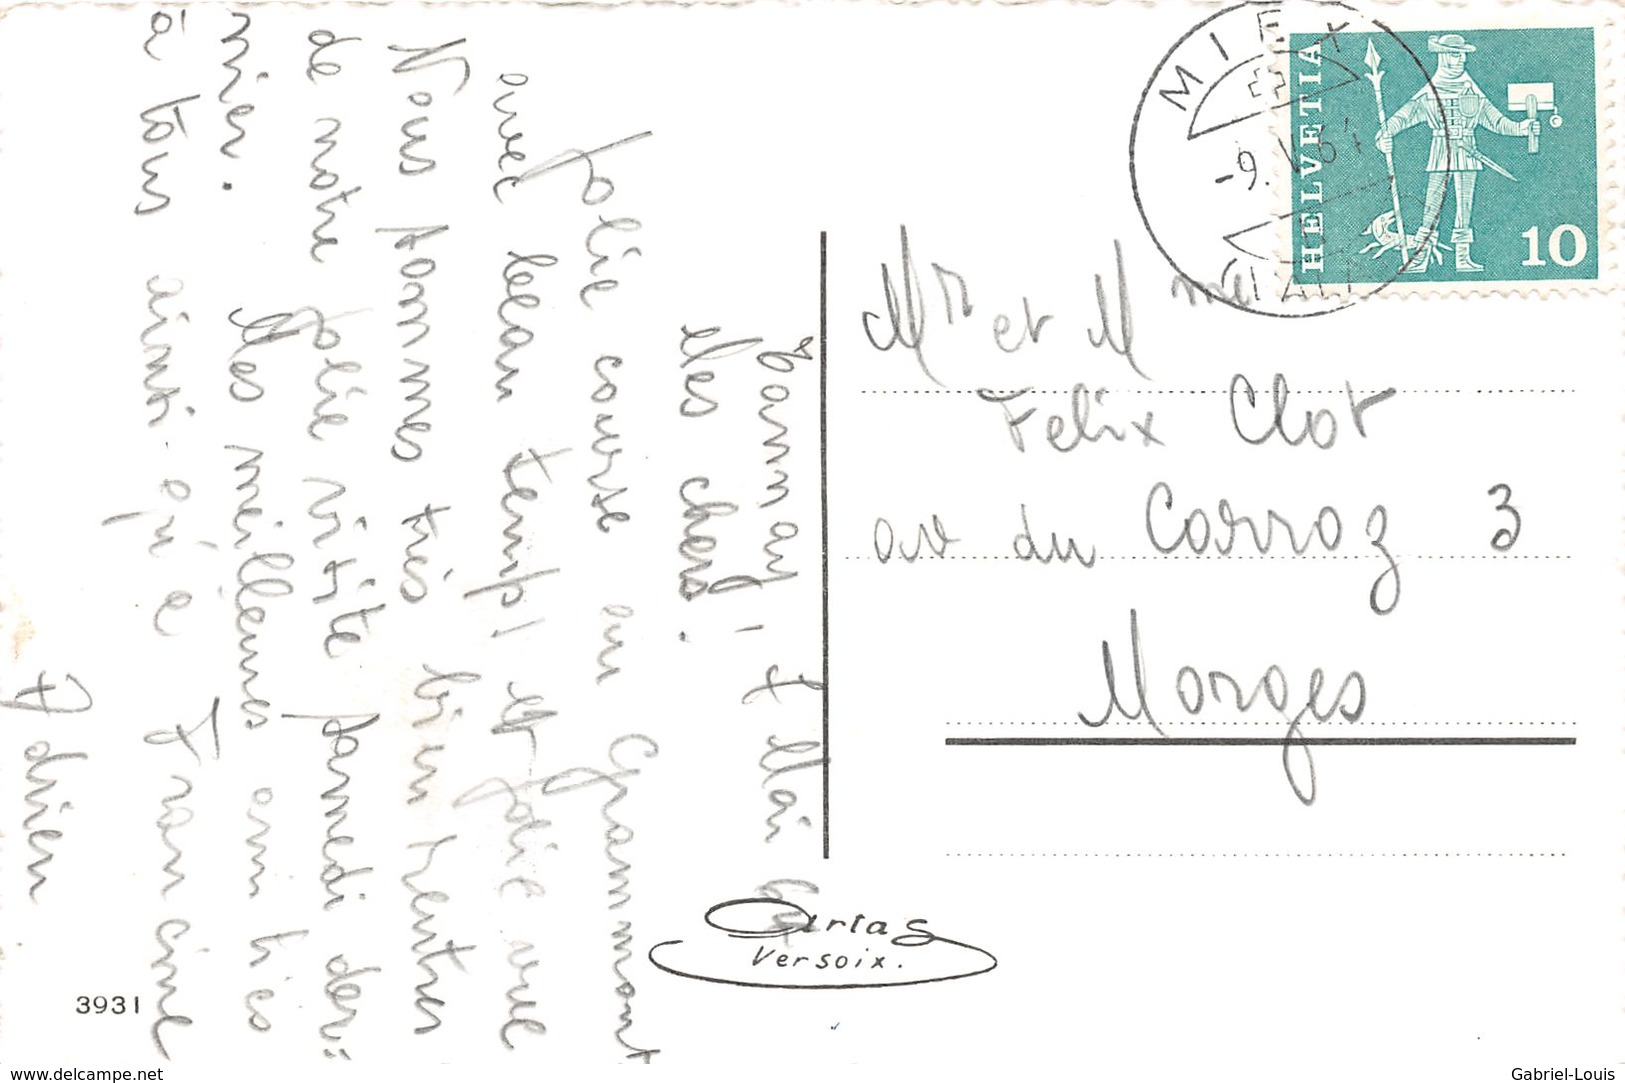 Tannay, 7 Mai 64
Mes chers!
Jolie course au Grammont
avec beau temp! et jolie vue
Nous sommes très bien rentrés
de notre jolie visite samedi der-
nier. Mes meilleures amitiés
à tous ainsi-qu'à Francine
Adrien
MIEX
-9.V.64
HELVETIA
10
Mr et Mme
Felix Clot
av du Carroz 3
Morges
Artas
Versoix.
3931
www.delcampe.net
Gabriel-Louis